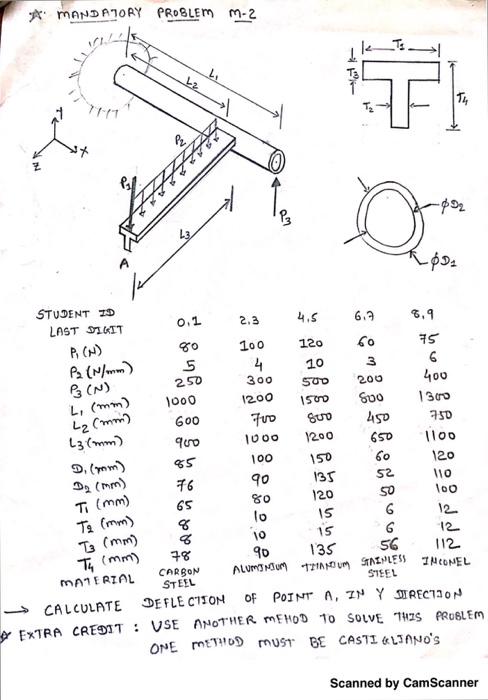 ☆ MANDATORY PROBLEM M-2
L1
L2
P2
P1
L3
P3
A
Y
X
Z
T1
T3
T2
T4
φD2
φD1
STUDENT ID LAST DIGIT 0,1 2,3 4,5 6,7 8,9
P1 (N) 80 100 120 60 75
P2 (N/mm) 5 4 10 3 6
P3 (N) 250 300 500 200 400
L1 (mm) 1000 1200 1500 800 1300
L2 (mm) 600 700 800 450 750
L3 (mm) 900 1000 1200 650 1100
D1 (mm) 85 100 150 60 120
D2 (mm) 76 90 135 52 110
T1 (mm) 65 80 120 50 100
T2 (mm) 8 10 15 6 12
T3 (mm) 8 10 15 6 12
T4 (mm) 78 90 135 56 112
MATERIAL CARBON STEEL ALUMINIUM TITANIUM STAINLESS STEEL INCONEL
→ CALCULATE DEFLECTION OF POINT A, IN Y DIRECTION
☆ EXTRA CREDIT : USE ANOTHER MEHOD TO SOLVE THIS PROBLEM
ONE METHOD MUST BE CASTIGLIANO'S
Scanned by CamScanner